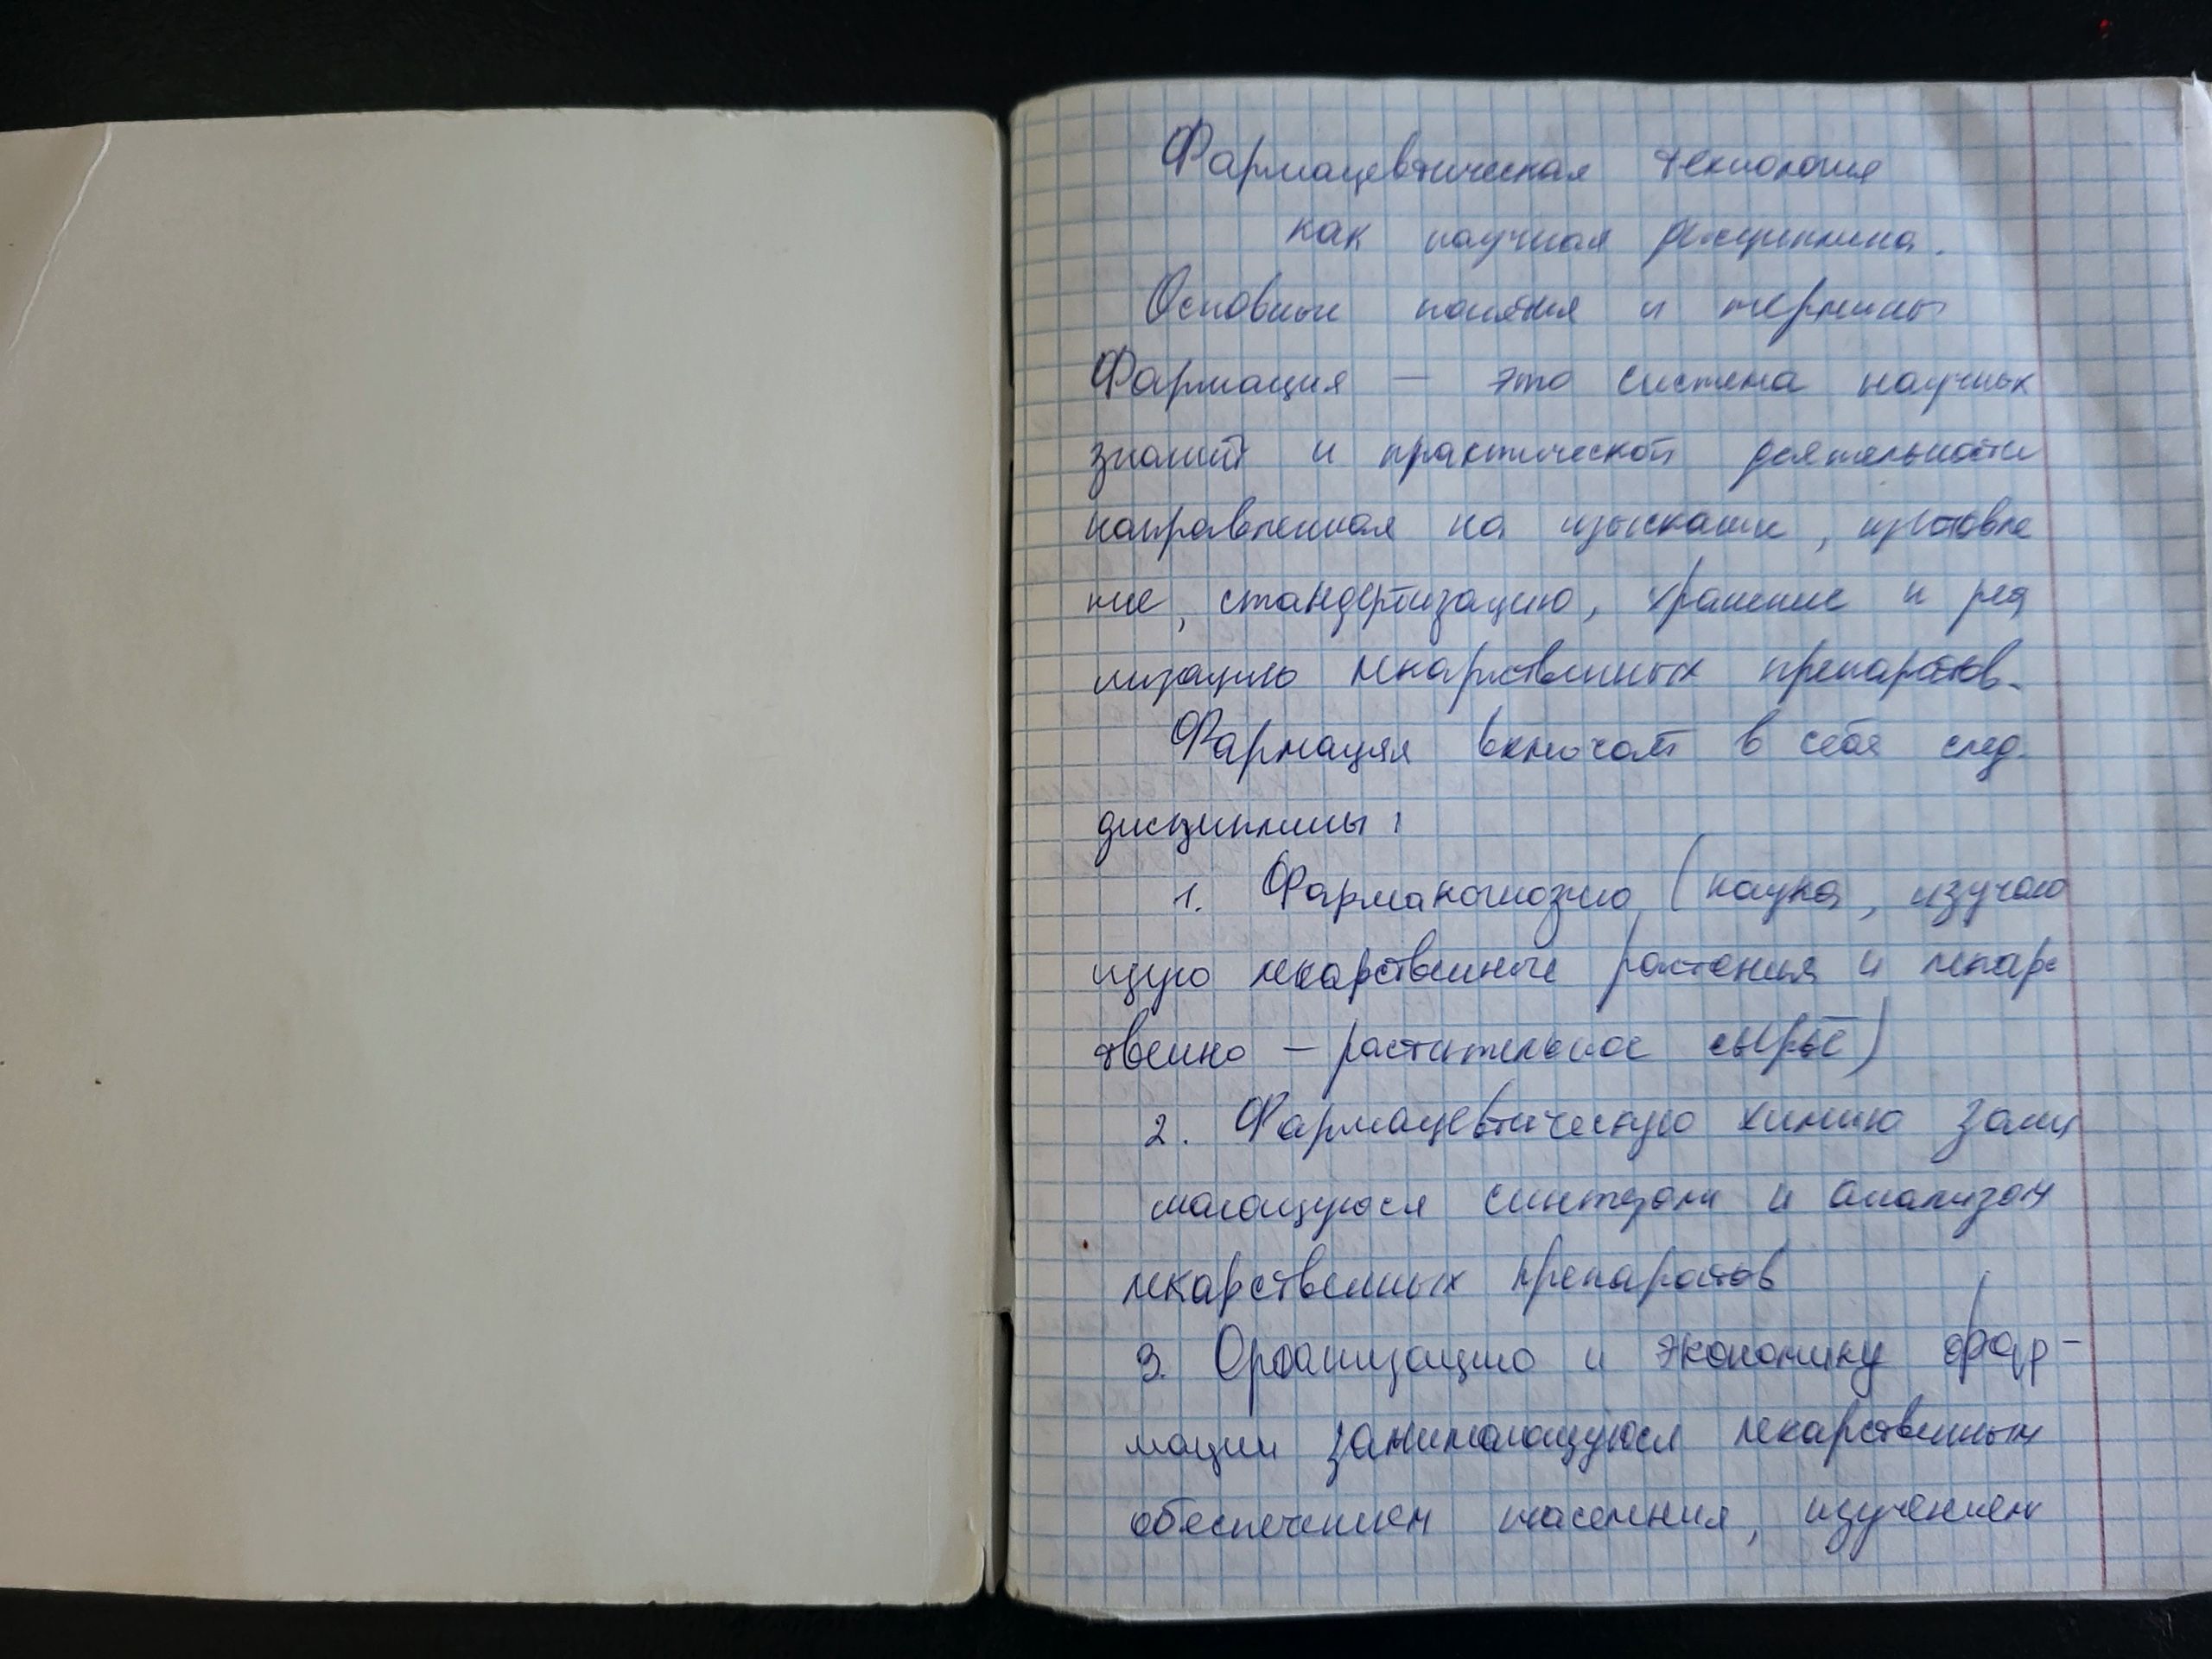 Фармацевтическая технология
как научная дисциплина.
Основные понятия и термины
Фармация — это система научных
знаний и практической деятельности
направленная на изыскание, изготовле
ние, стандертизацию, хранение и реа
лизацию лекарственных препаратов.
Фармация включает в себя след.
дисциплины:
1. Фармакогнозию (наука, изучаю
щую лекарственные растения и лекарс
твенно – растительное сырьё)
2. Фармацевтическую химию зани
мающуюся синтезом и анализом
лекарственных препаратов
3. Организацию и экономику фар-
мации занимающуюся лекарственным
обеспечением населения, изучением